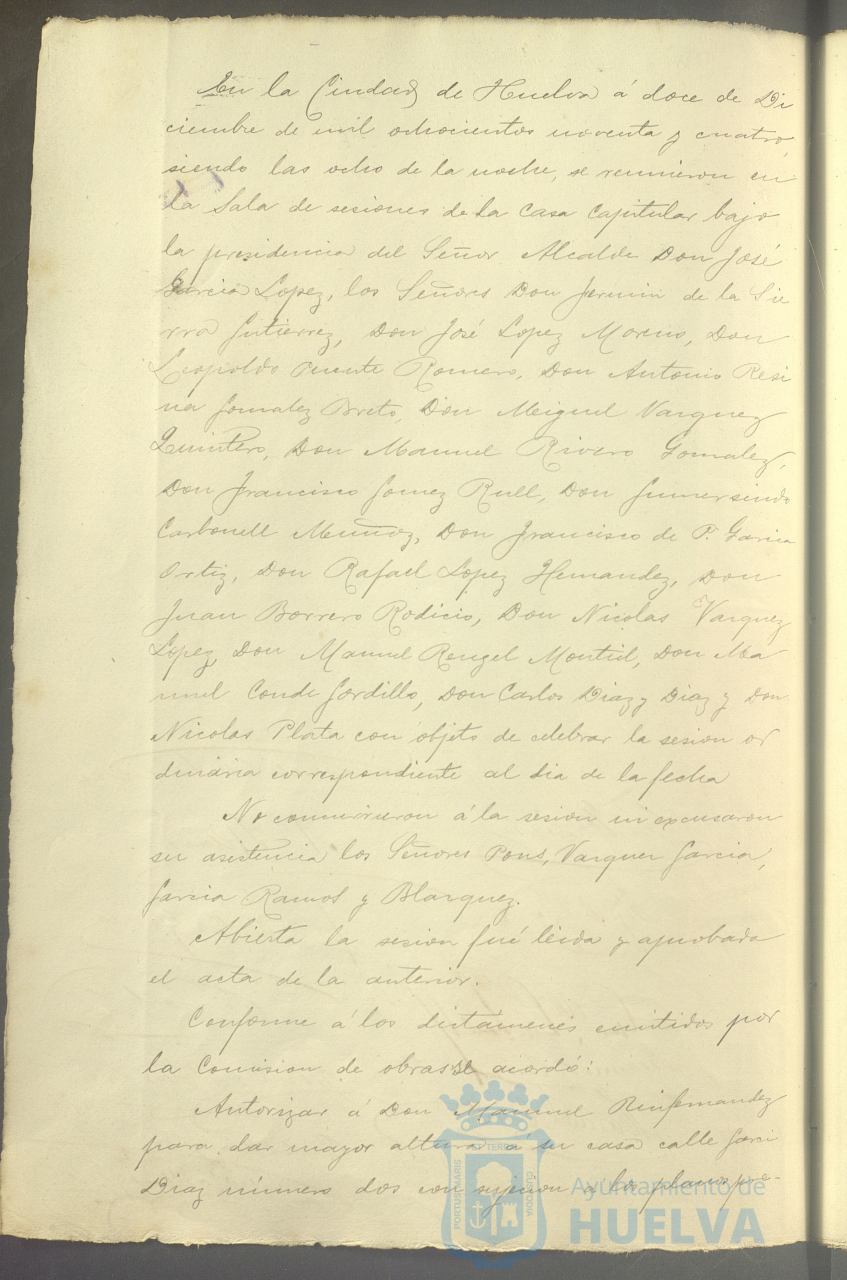 En la Ciudad de Huelva á doce de Di
ciembre de mil ochocientos noventa y cuatro,
siendo las ocho de la noche, se reunieron en
la Sala de sesiones de la Casa Capitular bajo
la presidencia del Señor Alcalde Don José
Garcia Lopez, los Señores Don Fermin de la Sie
rra Gutierrez, Don José Lopez Moreno, Don
Leopoldo Puente Romero, Don Antonio Resi
na Gonzalez Brito, Don Miguel Vazquez
Quintero, Don Manuel Rivero Gonzalez,
Don Francisco Gomez Rull, Don Gumersindo
Carbonell Muñoz, Don Francisco de P. Garcia
Ortiz, Don Rafael Lopez Hernandez, Don
Juan Borrero Rodicio, Don Nicolas Vazquez
Lopez, Don Manuel Rengel Montiel, Don Ma
nuel Conde Gordillo, Don Carlos Diaz y Diaz y Don
Nicolas Plata con objeto de celebrar la sesion or
dinaria correspondiente al dia de la fecha
No concurrieron á la sesion ni excusaron
su asistencia los Señores Pons, Vazquez Garcia,
Garcia Ramos y Blazquez.
Abierta la sesion fué leida y aprobada
el acta de la anterior.
Conforme á los dictámenes emitidos por
la Comision de obras se acordó:
Autorizar á Don Manuel Rinfernandez
para dar mayor altura á su casa calle Garci
Diaz número dos con sujecion a los planos pre-
PORTUS MARIS
ET TERRAE
CUSTODIA
Ayuntamiento de
HUELVA